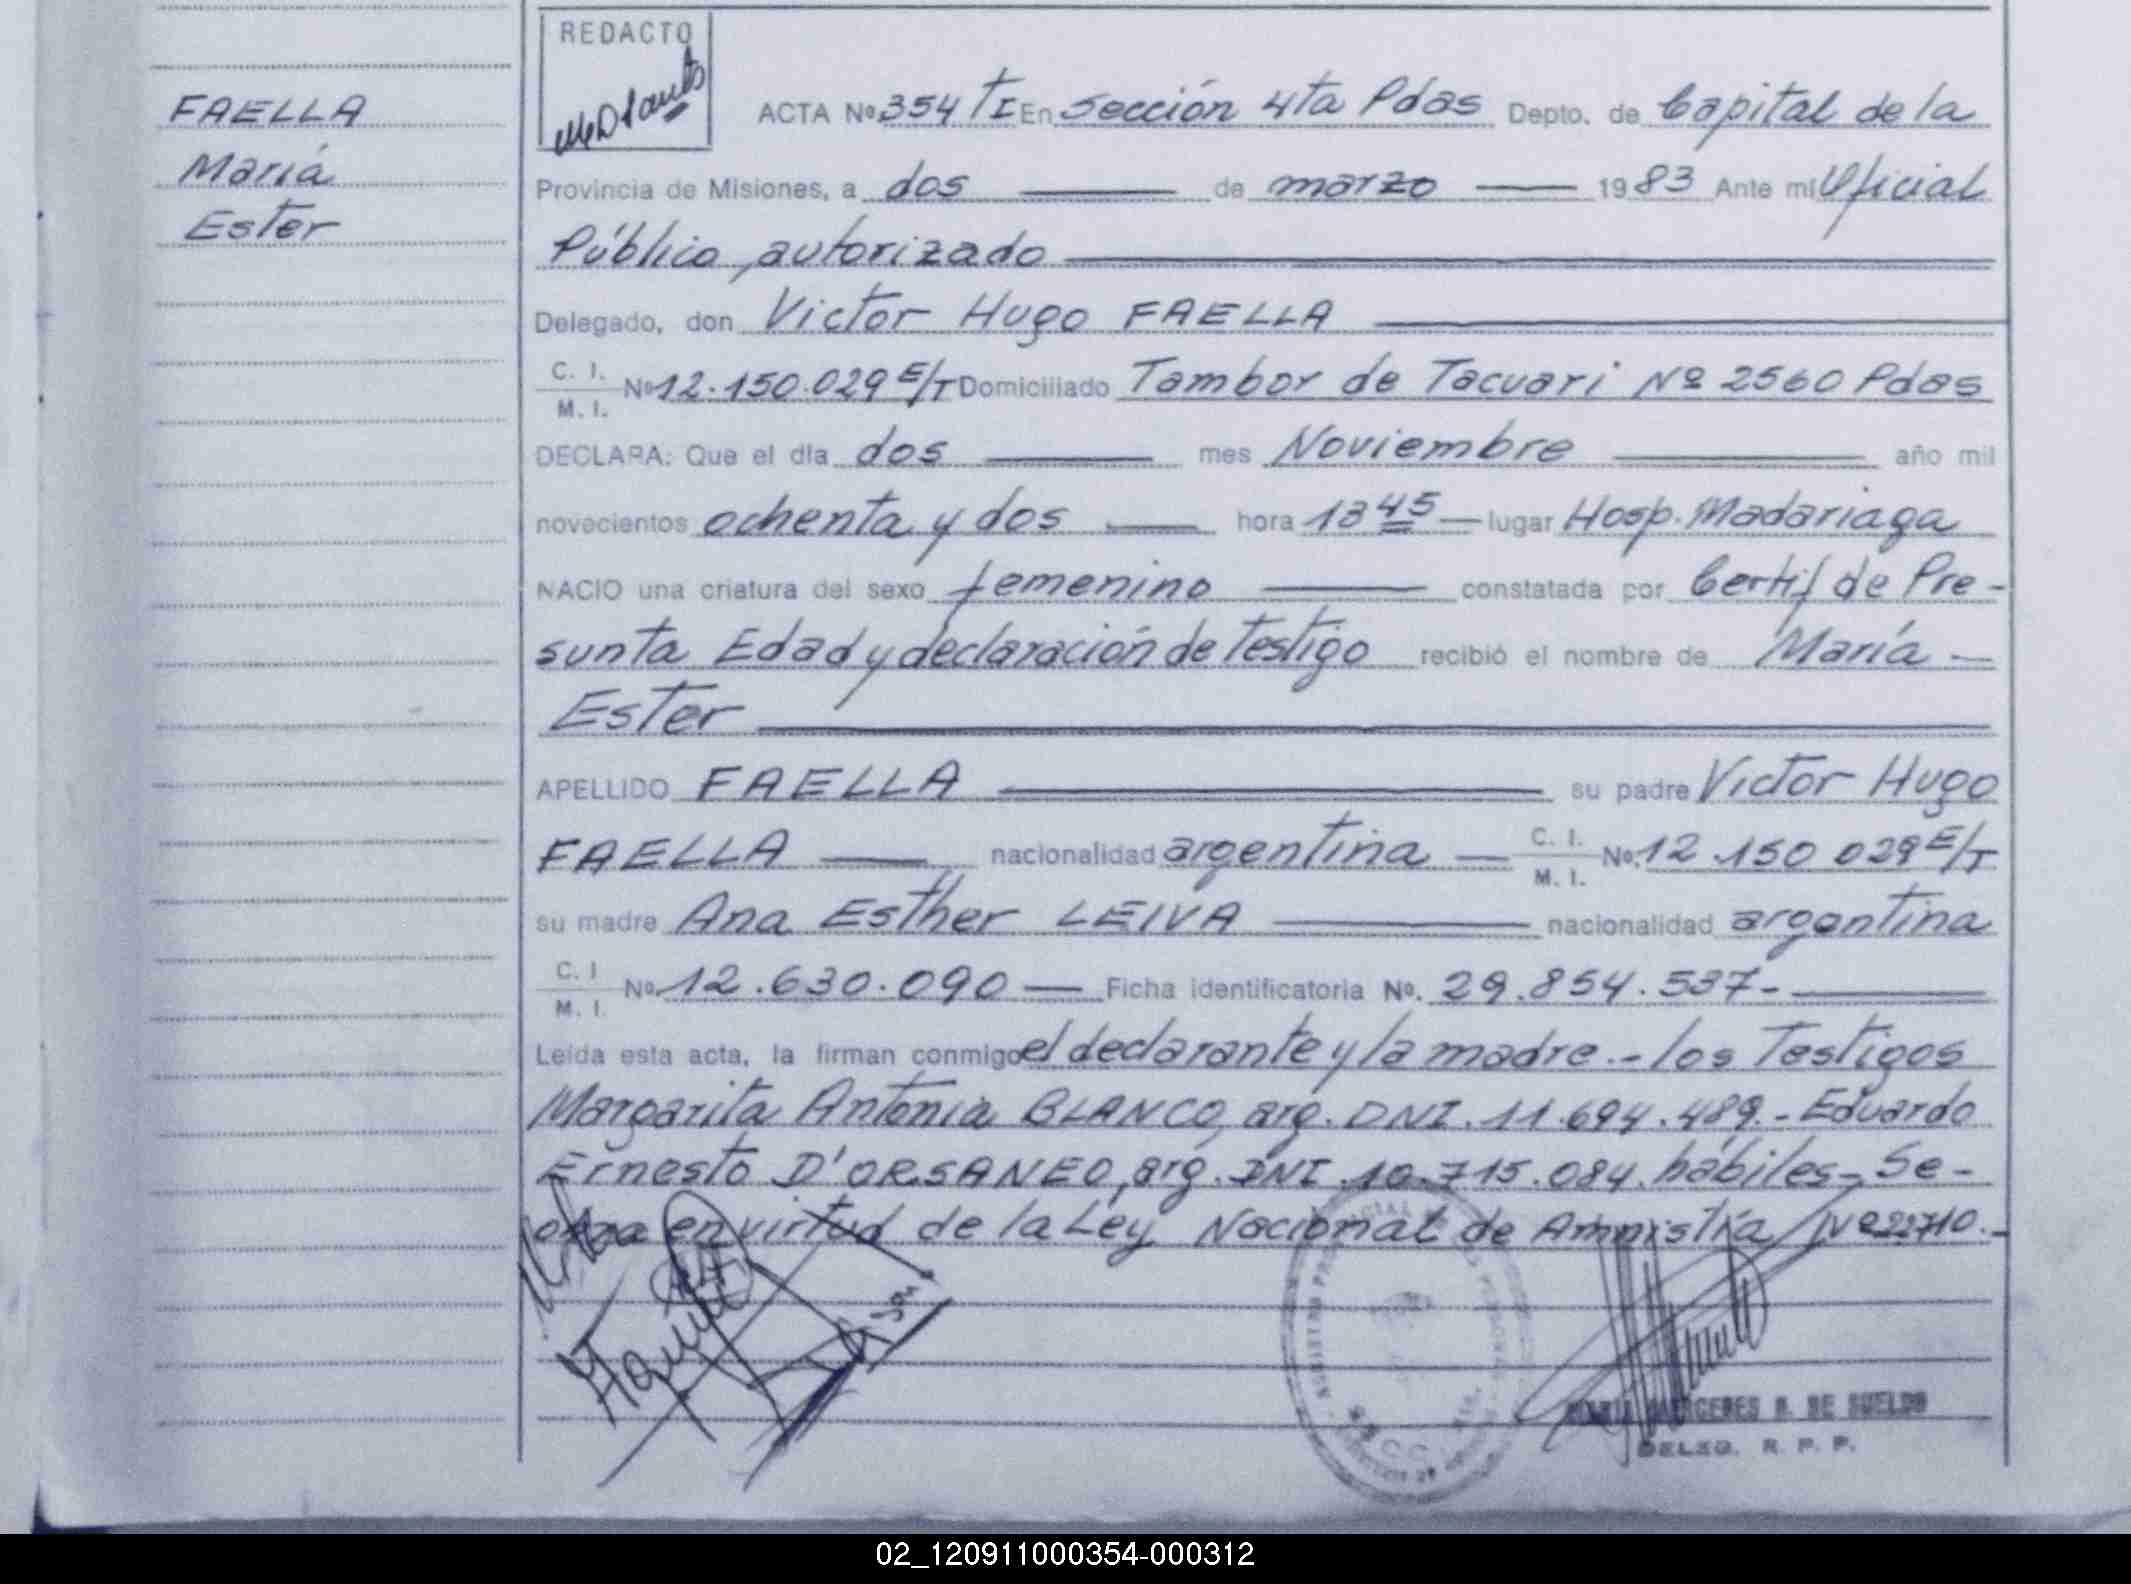 FAELLA
María
Ester
REDACTO
ACTA Nº 354 TI En Sección 4ta Pdas Depto. de Capital de la
Provincia de Misiones, a dos de marzo 1983 Ante mí Oficial
Público autorizado
Delegado, don Victor Hugo FAELLA
C. I. M. I. Nº 12.150.029 E/T Domiciliado Tambor de Tacuari Nº 2560 Pdas
DECLARA: Que el día dos mes Noviembre año mil
novecientos ochenta y dos hora 13 45 lugar Hosp. Madariaga
NACIO una criatura del sexo femenino constatada por Certif de Pre-
sunta Edad y declaración de Testigo recibió el nombre de María
Ester
APELLIDO FAELLA su padre Victor Hugo
FAELLA nacionalidad argentina C. I. M. I. Nº. 12.150 029 E/T
su madre Ana Esther LEIVA nacionalidad argentina
C. I M. I. Nº. 12.630.090 Ficha identificatoria Nº. 29.854.537-
Leída esta acta, la firman conmigo el declarante y la madre.- los Testigos
Margarita Antonia BLANCO, arg. DNI. 11.694.489.- Eduardo
Ernesto D'ORSANEO, arg. DNI. 10.715.084. hábiles- Se-
en virtud de la Ley Nacional de Amnistía Nº 22710.-
DE SUELDO
DELEG. R. P. P.
02_120911000354-000312